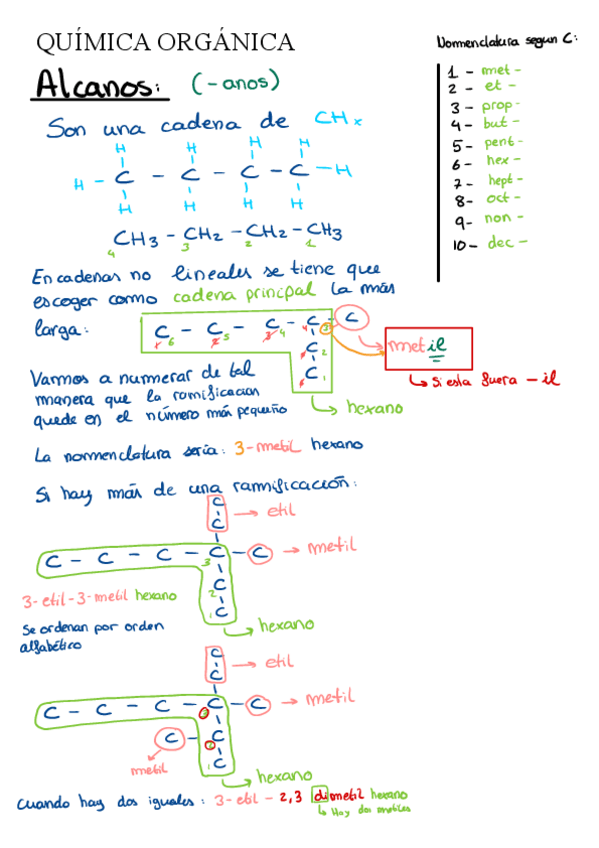 QUÍMICA ORGÁNICA
Nomenclatura segun C:
Alcanos: (-anos)
1 - met -
2 - et -
3 - prop -
4 - but -
5 - pent -
6 - hex -
7 - hept -
8 - oct -
9 - non -
10 - dec -
Son una cadena de CHx
H H H H
H - C - C - C - C - H
H H H H
CH3 - CH2 - CH2 - CH3
4 3 2 1
En cadenas no lineales se tiene que
escoger como cadena principal la más
larga:
C - C - C - C - C
6 5 4 3
C 2
C 1
metil
Si esta fuera - il
hexano
Vamos a numerar de tal
manera que la ramificacion
quede en el número más pequeño
La nomenclatura sería: 3-metil hexano
Si hay más de una ramificación:
C
C
etil
C - C - C - C - C
3
metil
C 2
C 1
3-etil-3-metil hexano
hexano
Se ordenan por orden
alfabético
C
C
etil
C - C - C - C - C
3
metil
C - C
2
metil
C 1
hexano
Cuando hay dos iguales: 3-etil - 2,3 dimetil hexano
Hay dos metiles